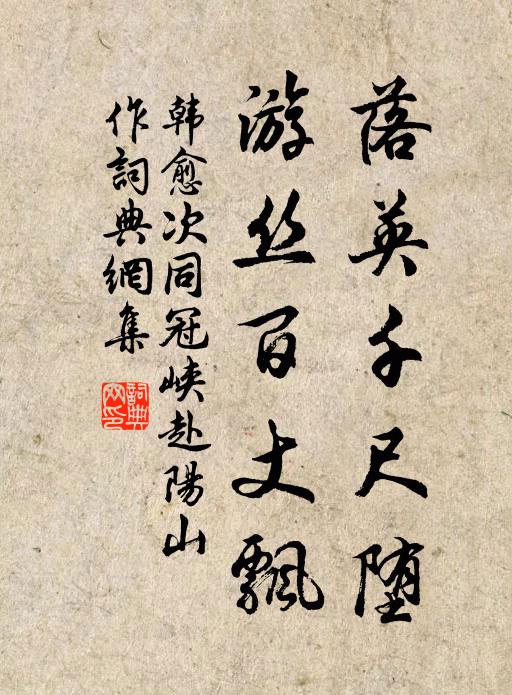 落英千尺堕
游丝百丈飘
韩愈次同冠峡赴陽山
作詞典網集
詞典
网印